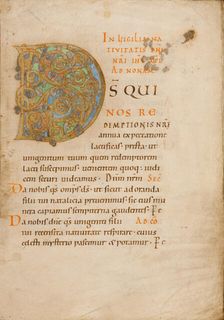 IN VIGILIA NA
TIVITATIS DNI
NRI IHU XPI
AD NONAM
D S QUI
NOS RE
DEMPTIONIS NRAE
annua expectatione
laetificas presta · ut
unigenitum tuum quem redemptorem
laeti suscepimus · uenientem quoq; iudi
cem securi uideamus · Dnm nrm Sec
Da nobis qs omps ds · ut sicut adoranda
filii tui natalicia preuenimus · sic eius mu
nera capiamus sempiterna gaudentes · P
Da nobis dne qs unigeniti filii AD CO
tui recensita natiuitate respirare · cuius
caelesti mysterio pascimur & potamur · P